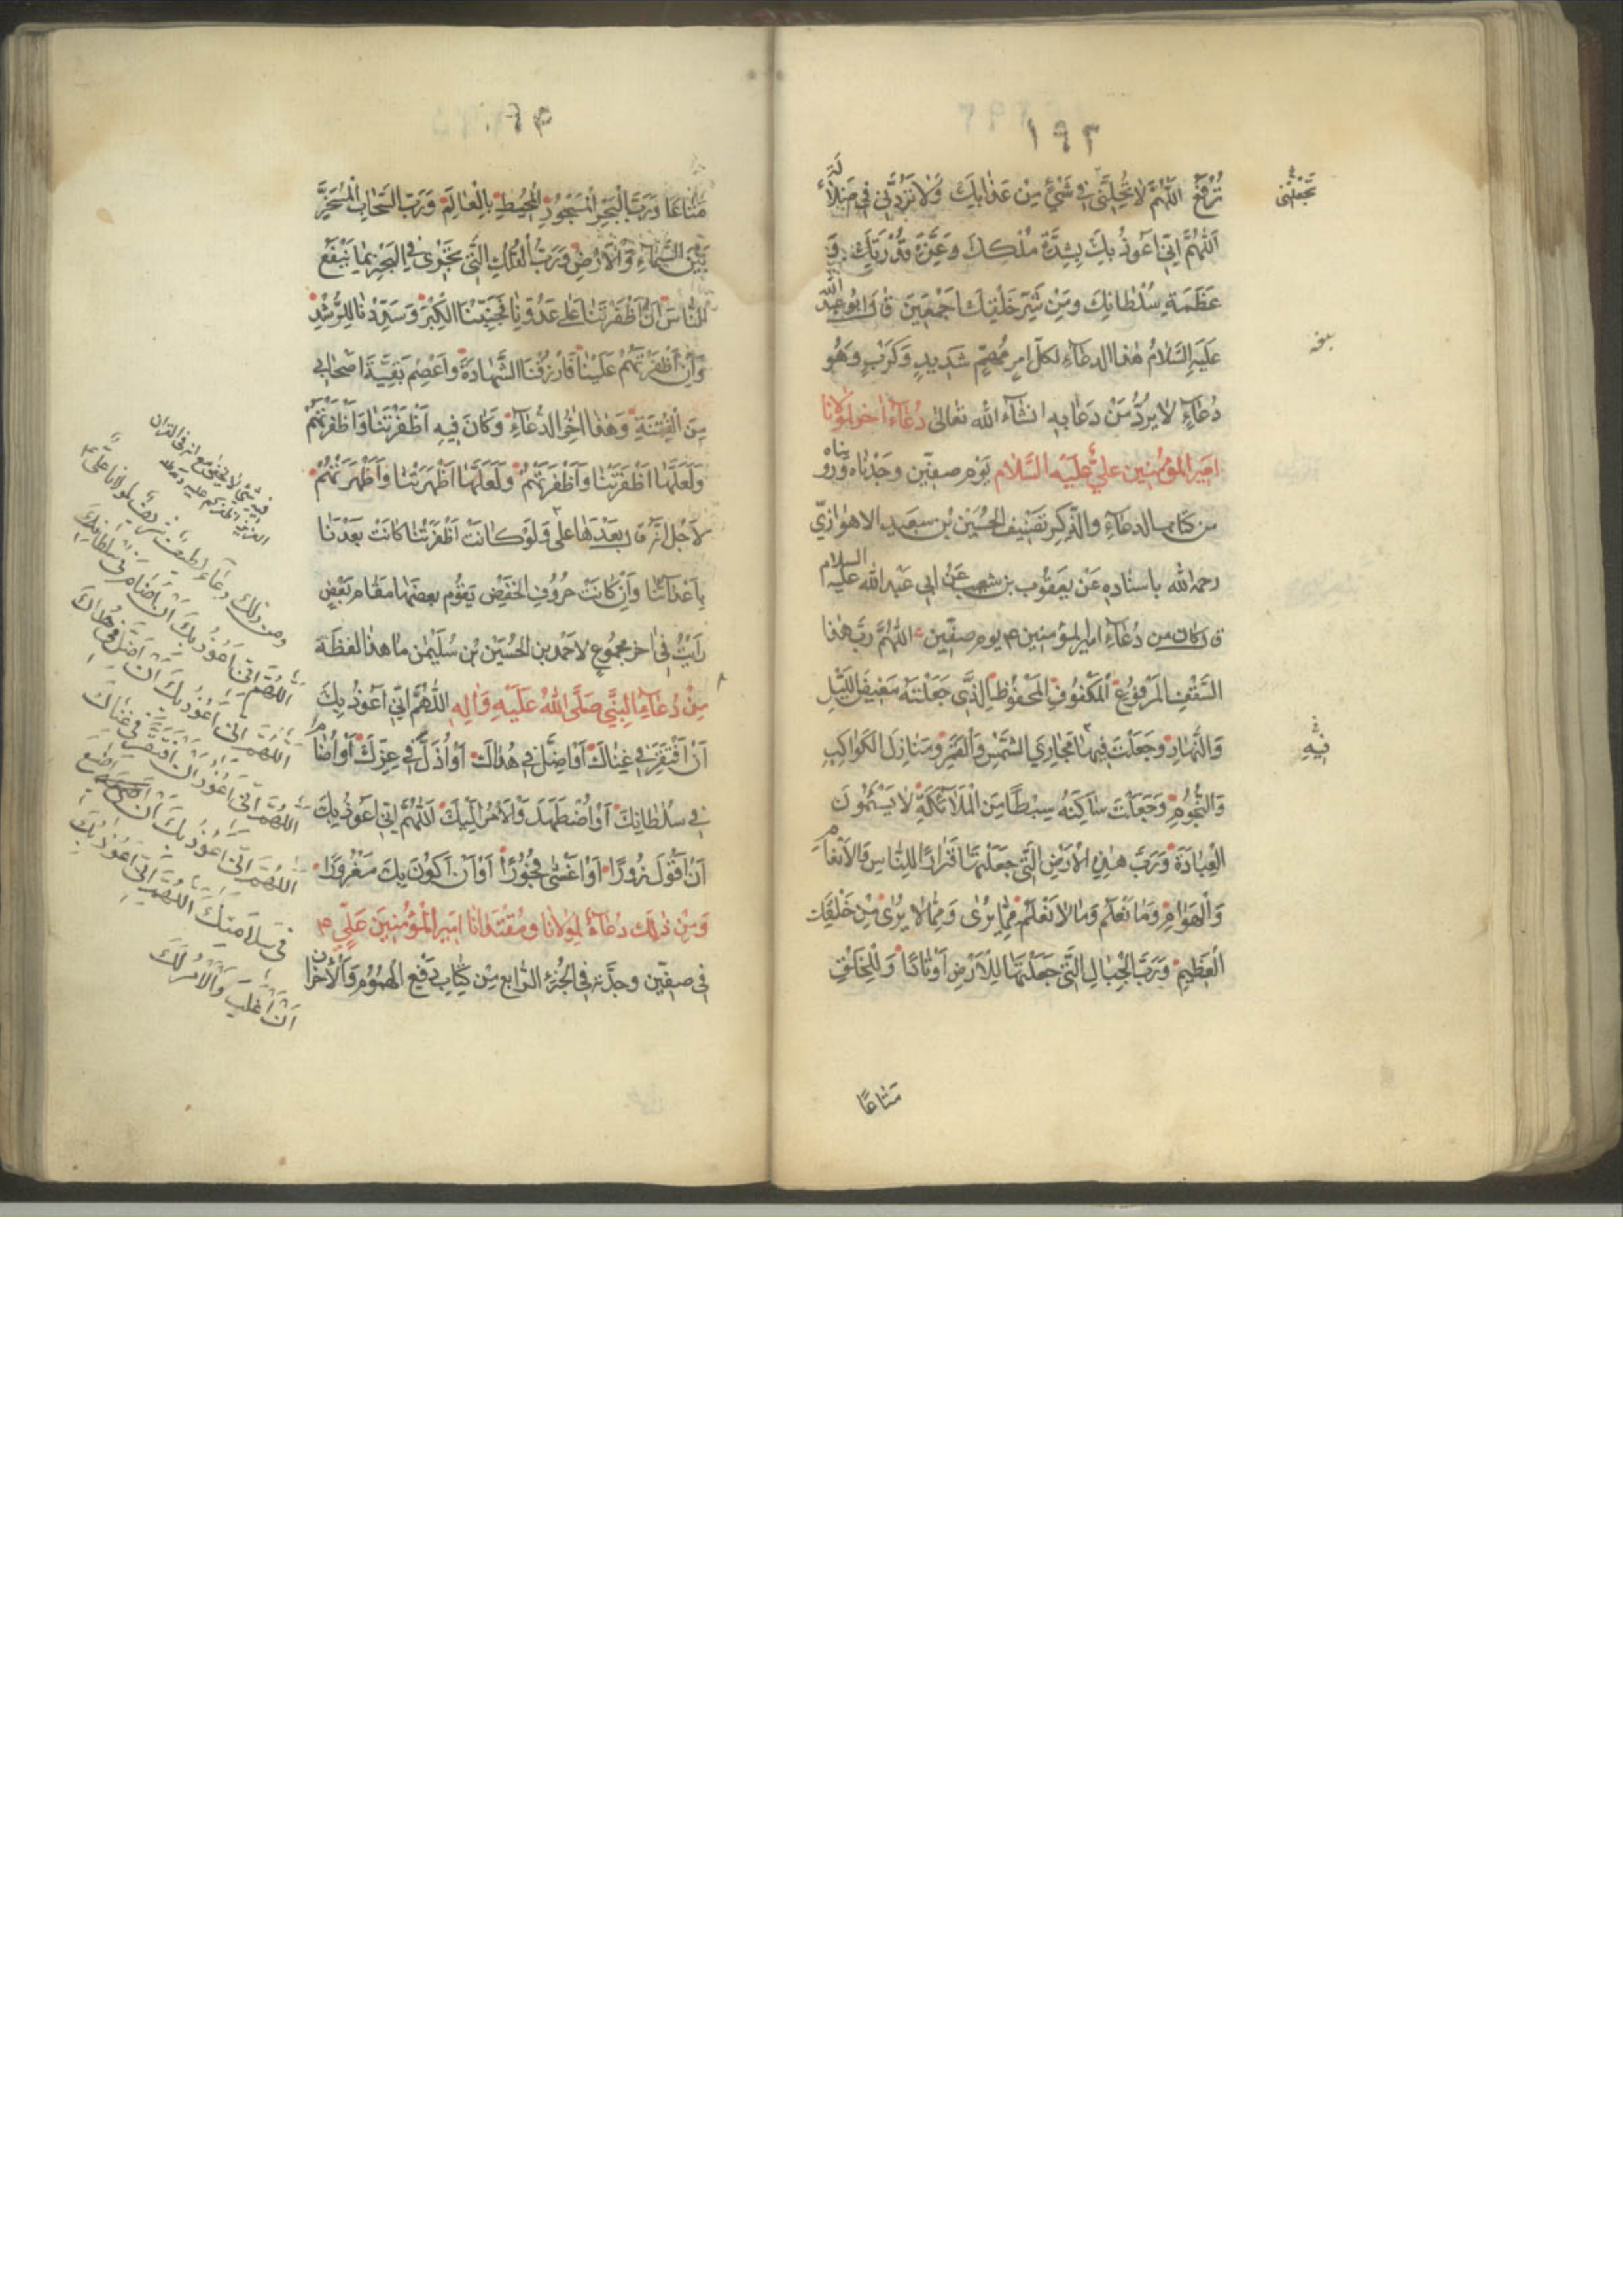 ١٩٢
تُرْفَعُ اَللّٰهُمَّ لا تُحِلَّنى فى شَىْءٍ مِنْ عَذابِكَ وَلا تَرُدَّنى فى ضَلالَةٍ
تَجْعَلْنى
اَللّٰهُمَّ اِنّى اَعوذُ بِكَ بِشِدَّةِ مُلْكِكَ وَعِزَّةِ قُدْرَتِكَ وَ
عَظَمَةِ سُلْطانِكَ وَمِنْ شَرِّ خَلْقِكَ اَجْمَعينَ قال ابو عبد الله
عَلَيهِ السَّلامُ هٰذا الدعآء لكلّ امرٍ مُهِمٍّ شَديدٍ وَكَرْبٍ وهُو
دُعآءٌ لا يُرَدُّ مَنْ دَعا به انشآء الله تعالى دُعآء اخر لمولانا
امير المؤمنين علىّ عليه السَّلام يَوْم صفّين وجَدْناه وروَيناه
من كتاب الدعآء والذّكر تصنيف الحُسَيْن بن سعيد الاهوازىّ
رحمه الله باسناده عَنْ يعقوب بن شعيب عَنْ ابى عَبْد الله عليه السلام
قال كان من دُعآء امير المؤمنين ع يوم صفّين اَللّٰهُمَّ رَبَّ هٰذا
السَّقْفِ الْمَرْفوُعِ الْمَكْفُوفِ الْمَحْفُوظِ الَّذى جَعَلْتَهُ مَغيضَ اللَّيْلِ
وَالنَّهارِ وَجَعَلْتَ فيها مَجارِىَ الشَّمْسِ وَالْقَمَرِ وَمَنازِلَ الْكَواكِبِ
فيهِ
وَالنُّجُومِ وَجَعَلْتَ ساكِنَهُ سِبْطًا مِنَ الْمَلائِكَةِ لا يَسْئَمُونَ
الْعِبادَةَ وَرَبَّ هٰذِهِ الْاَرْضِ الَّتى جَعَلْتَها قَرارًا لِلنّاسِ وَالْاَنْعامِ
وَالْهَوامِّ وَما نَعْلَمُ وَما لا نَعْلَمُ مِمّا يُرىٰ وَمِمّا لا يُرىٰ مِنْ خَلْقِكَ
الْعَظيمِ وَرَبَّ الْجِبالِ الَّتى جَعَلْتَها لِلْاَرْضِ اَوْتادًا وَلِلْخَلْقِ
مَتاعًا
مَتاعًا وَرَبَّ الْبَحْرِ الْمَسْجُورِ الْمُحيطِ بِالْعالَمِ وَرَبَّ السَّحابِ الْمُسَخَّرِ
بَيْنَ السَّمآءِ وَالْاَرْضِ وَرَبَّ الْفُلْكِ الَّتى تَجْرى فِى الْبَحْرِ بِما يَنْفَعُ
النّاسَ اِنْ اَظْفَرْتَنا عَلى عَدُوِّنا فَجَنِّبْنَا الْكِبْرَ وَسَدِّدْنا لِلرُّشْدِ
وَاِنْ اَظْفَرْتَهُمْ عَلَيْنا فَارْزُقْنَا الشَّهادَةَ وَاعْصِمْ بَقِيَّةَ اَصْحابى
مِنَ الْفِتْنَةِ وَهٰذا اٰخِرُ الدُّعآءِ وَكانَ فيهِ اَظْفَرْتَنا وَاَظْفَرْتَهُمْ
وَلَعَلَّها اَظْفَرْتَنا وَاَظْفَرْتَهُمْ وَلَعَلَّها اَظْهَرْتَنا وَاَظْهَرْتَهُمْ
لاَجْل انّه قال بَعْدَها على وَلَوْ كانَتْ اَظْفَرْتَنا كانَتْ بَعْدَنا
بِاَعْدآئنا وَاِنْ كانَتْ حُروُف الْخَفْض يَقُوُم بعضها مَقام بَعْضٍ
رَاَيْتُ فى اٰخر مجمُوعٍ لاَحْمد بن الْحُسَيْن بْن سُلَيْمٰن ما هذا لفظه
مِنْ دُعآءِ النَّبِىِّ صَلَّى اللهُ عَلَيْهِ وَاٰلِه اَللّٰهُمَّ اِنّى اَعُوذُ بِكَ
اَنْ اَفْتَقِرَ فى غِناكَ اَوْ اَضِلَّ فى هُداكَ اَوْ اُذَلَّ فى عِزِّكَ اَوْ اُضامَ
فى سُلْطانِكَ اَوْ اُضْطَهَدَ وَالْاَمْرُ اِلَيْكَ اَللّٰهُمَّ اِنّى اَعُوذُ بِكَ
اَنْ اَقُولَ زُورًا اَوْ اَغْشى فُجُورًا اَوْ اَنْ اَكُونَ بِكَ مَغْرُورًا
وَمِنْ ذٰلِكَ دُعآءٌ لِمَوْلانا وَمُقْتَدانا اَميرِ الْمُؤْمِنينَ عَلِىٍّ ع
فى صفّين وجدْته فى الْجُزْءِ الرّابع مِنْ كِتاب دَفْع الهُمُوْم وَالْاَحْزان
ومن ذلك دعآء لمولانا علىّ ع
اَللّٰهُمَّ اِنّى اَعُوْذُ بِكَ اَنْ اُضامَ فى سُلْطانِكَ
اَللّٰهُمَّ اِنّى اَعُوْذُ بِكَ اَنْ اَضِلَّ فى هُداكَ
اَللّٰهُمَّ اِنّى اَعُوْذُ بِكَ اَنْ اَفْتَقِرَ فى غِناكَ
اَللّٰهُمَّ اِنّى اَعُوْذُ بِكَ اَنْ اَضيعَ
فى سَلامَتِكَ اَللّٰهُمَّ اِنّى اَعُوْذُ بِكَ
اَنْ اُغْلَبَ وَالْاَمْرُ لَكَ